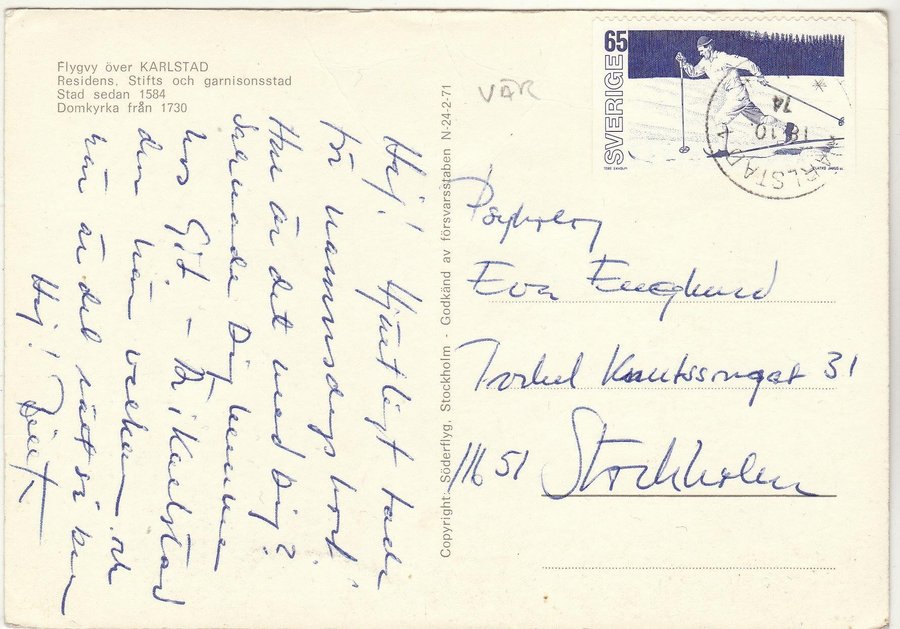 Flygvy över KARLSTAD
Residens, Stifts och garnisonsstad
Stad sedan 1584
Domkyrka från 1730
VÄR
SVERIGE 65
KARLSTAD
18.10
74
Hej! Hjärtligt tack
för namnsdagskort!
Hur är det med Dig?
Saknade Dig hemma
hos Göt - Är i Karlstad
den här veckan och
här är det
Hej!
Copyright: Söderflyg, Stockholm - Godkänd av försvarsstaben N-24-2-71
Eva Englund
Torkel Knutssonsgat 31
116 51 Stockholm